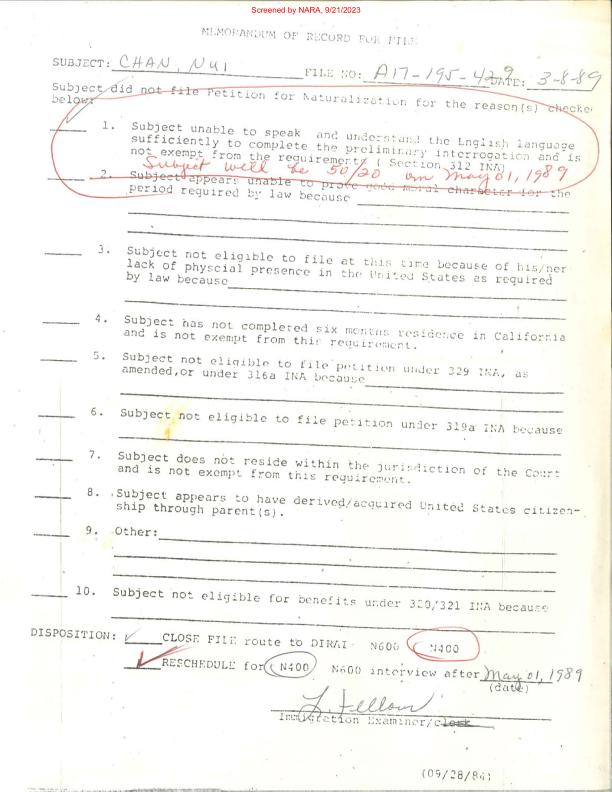 Screened by NARA, 9/21/2023
MEMORANDUM OF RECORD FOR FILE
SUBJECT: CHAN, NUI FILE NO: A17-195-429 DATE: 3-8-89
Subject did not file Petition for Naturalization for the reason(s) checked
below:
1. Subject unable to speak and understand the English language
sufficiently to complete the preliminary interrogation and is
not exempt from the requirements ( Section 312 INA)
Subject will be 50/20 on May 01, 1989
2. Subject appears unable to prove good moral character for the
period required by law because
3. Subject not eligible to file at this time because of his/her
lack of physcial presence in the United States as required
by law because
4. Subject has not completed six months residence in California
and is not exempt from this requirement.
5. Subject not eligible to file petition under 329 INA, as
amended,or under 316a INA because
6. Subject not eligible to file petition under 319a INA because
7. Subject does not reside within the jurisdiction of the Court
and is not exempt from this requirement.
8. Subject appears to have derived/acquired United States citizen-
ship through parent(s).
9. Other:
10. Subject not eligible for benefits under 320/321 INA because
DISPOSITION: CLOSE FILE route to N600 N400
RESCHEDULE for N400 N600 interview after May 01, 1989
(date)
L. Fellow
Immigration Examiner/clerk
(09/28/84)